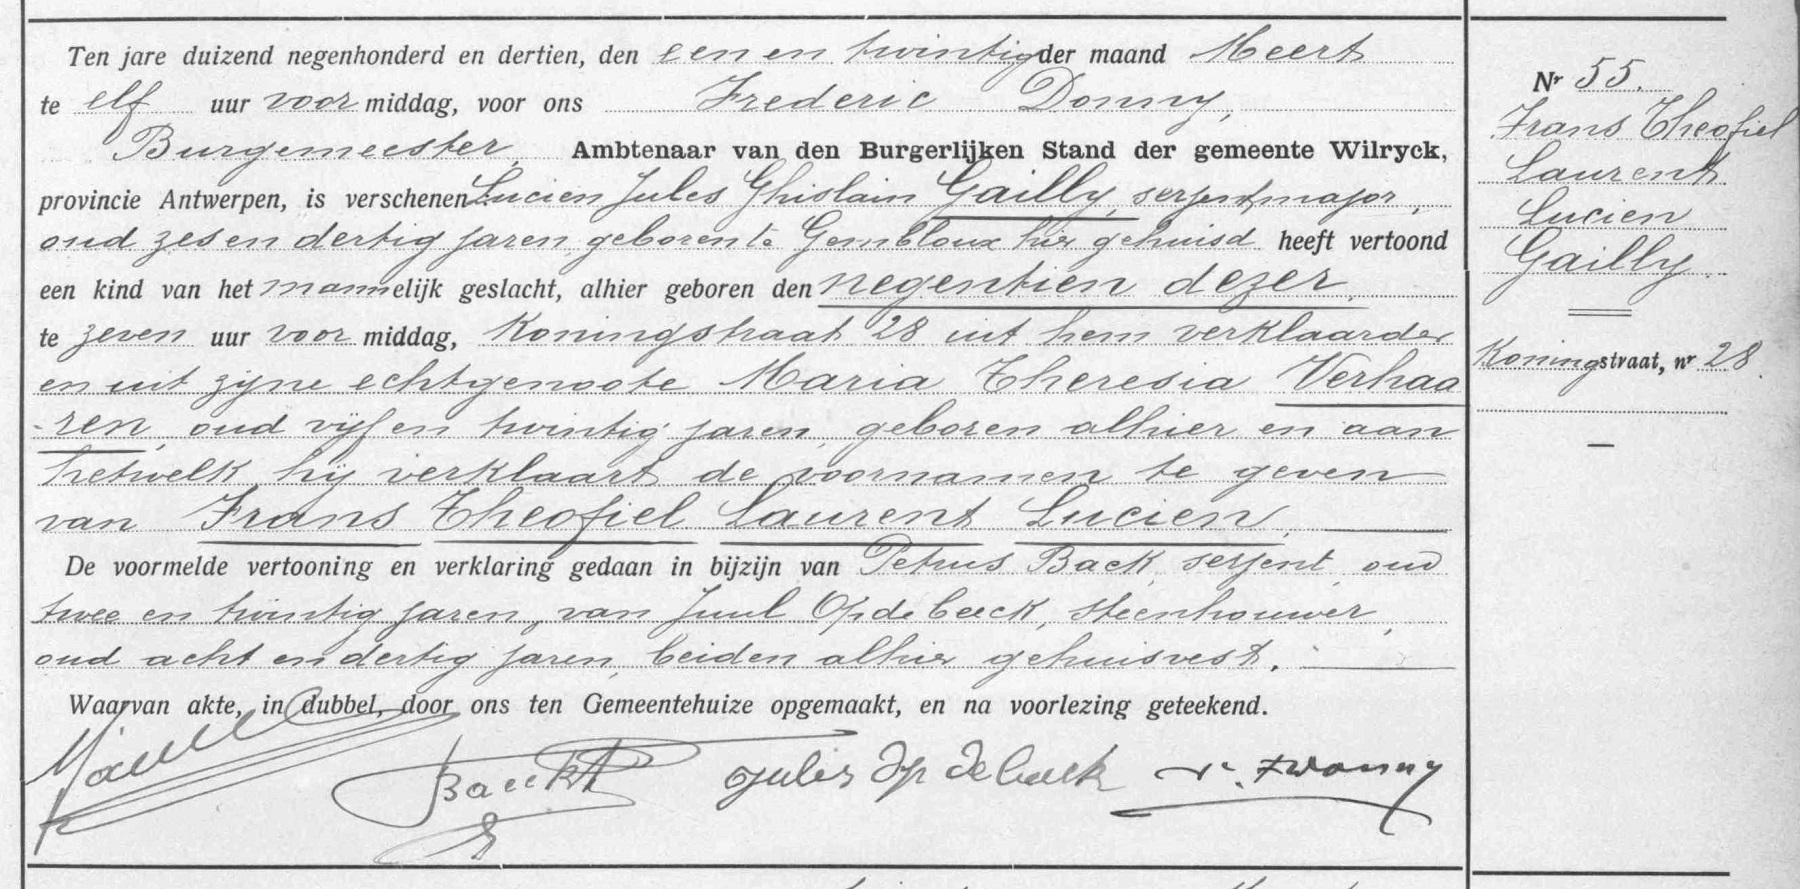 Ten jare duizend negenhonderd en dertien, den een en twintig der maand Meert
te elf uur voor middag, voor ons Frederic Donny,
Burgemeester, Ambtenaar van den Burgerlijken Stand der gemeente Wilryck,
provincie Antwerpen, is verschenen Lucien Jules Ghislain Gailly, serjent major,
oud zes en dertig jaren, geboren te Gembloux hier gehuisd heeft vertoond
een kind van het mannelijk geslacht, alhier geboren den negentien dezer,
te zeven uur voor middag, Koningstraat 28 uit hem verklaarder
en uit zijne echtgenoote Maria Theresia Verhaa
-ren, oud vijf en twintig jaren, geboren alhier en aan
hetwelk hij verklaart de voornamen te geven
van Frans Theofiel Laurent Lucien,
De voormelde vertooning en verklaring gedaan in bijzijn van Petrus Back, serjent, oud
twee en twintig jaren, van Juul Opdebeeck, steenhouwer,
oud acht en dertig jaren, beiden alhier gehuisvest.
Waarvan akte, in dubbel, door ons ten Gemeentehuize opgemaakt, en na voorlezing geteekend.
Jules Op de beeck
Nr 55.
Frans Theofiel
Laurent
Lucien
Gailly
Koningstraat, nr 28.